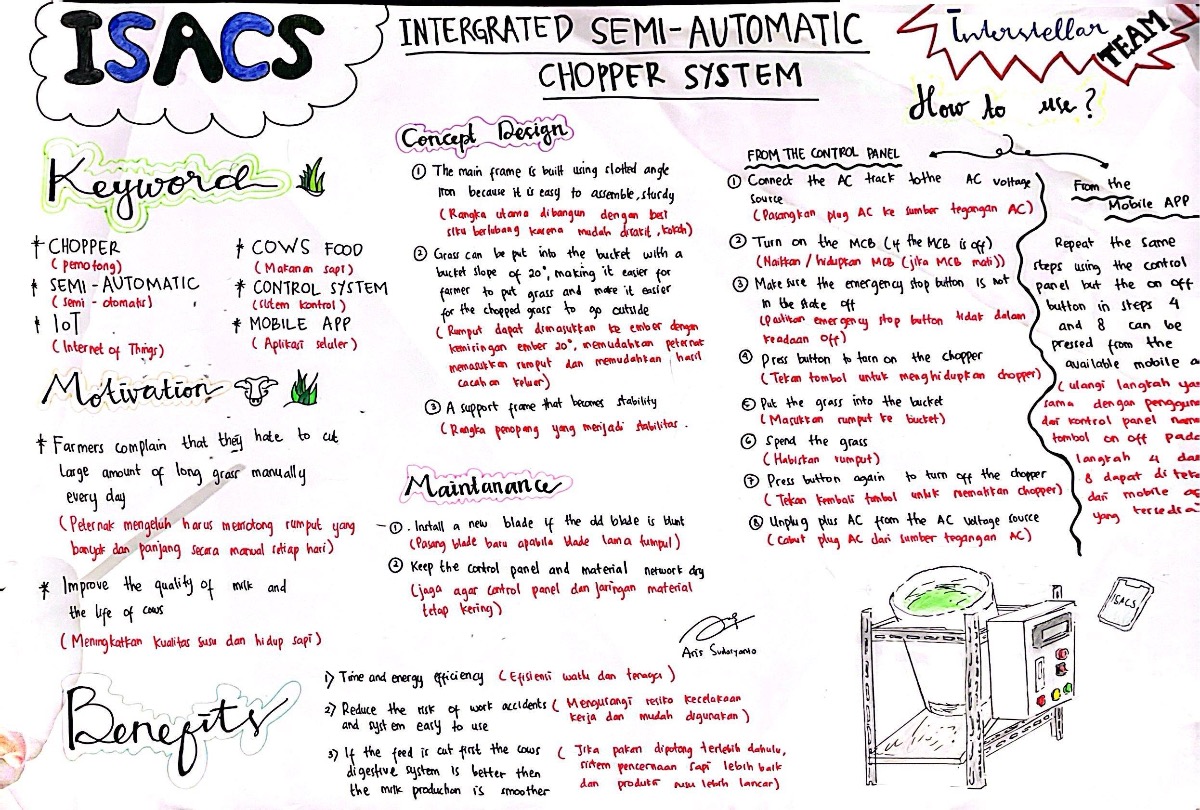 ISACS
INTERGRATED SEMI-AUTOMATIC
CHOPPER SYSTEM
Interstellar
TEAM
Keyword
* CHOPPER
(pemotong)
* SEMI-AUTOMATIC
(semi-otomatis)
* IoT
(Internet of Things)
* COWS FOOD
(Makanan sapi)
* CONTROL SYSTEM
(sistem kontrol)
* MOBILE APP
(Aplikasi seluler)
Motivation
* Farmers complain that they hate to cut
large amount of long grass manually
every day
(Peternak mengeluh harus memotong rumput yang
banyak dan panjang secara manual setiap hari)
* Improve the quality of milk and
the life of cows
(Meningkatkan kualitas susu dan hidup sapi)
Concept Design
① The main frame is built using clotted angle
iron because it is easy to assemble, sturdy
(Rangka utama dibangun dengan besi
siku berlubang karena mudah dirakit, kokoh)
② Grass can be put into the bucket with a
bucket slope of 20°, making it easier for
farmer to put grass and make it easier
for the chopped grass to go outside
(Rumput dapat dimasukkan ke ember dengan
kemiringan ember 20°, memudahkan peternak
memasukkan rumput dan memudahkan hasil
cacahan keluar)
③ A support frame that becomes stability
(Rangka penopang yang menjadi stabilitas.
Maintanance
① . Install a new blade if the old blade is blunt
(Pasang blade baru apabila blade lama tumpul)
② Keep the control panel and material network dry
(jaga agar control panel dan jaringan material
tetap kering)
Aris Sudaryanto
How to use?
FROM THE CONTROL PANEL
① Connect the AC track to the AC voltage
source
(Pasangkan plug AC ke sumber tegangan AC)
② Turn on the MCB (if the MCB is off)
(Naikkan / hidupkan MCB (jika MCB mati))
③ Make sure the emergency stop button is not
in the state off
(Pastikan emergency stop button tidak dalam
keadaan off)
④ Press button to turn on the chopper
(Tekan tombol untuk menghidupkan chopper)
⑤ Put the grass into the bucket
(Masukkan rumput ke bucket)
⑥ Spend the grass
(Habiskan rumput)
⑦ Press button again to turn off the chopper
(Tekan kembali tombol untuk mematikan chopper)
⑧ Unplug plus AC from the AC voltage source
(Cabut plug AC dari sumber tegangan AC)
From the
Mobile APP
Repeat the same
steps using the control
panel but the on off
button in steps 4
and 8 can be
pressed from the
available mobile
(ulangi langkah
sama dengan
dari kontrol panel
tombol on off
langkah 4
8 dapat di
dari mobile
yang
ISACS
Benefits
1) Time and energy efficiency (Efisiensi waktu dan tenaga)
2) Reduce the risk of work accidents
and system easy to use
(Mengurangi resiko kecelakaan
kerja dan mudah digunakan)
3) If the feed is cut first the cows
digestive system is better then
the milk production is smoother
(Jika pakan dipotong terlebih dahulu,
sistem pencernaan sapi lebih baik
dan produksi susu lebih lancar)